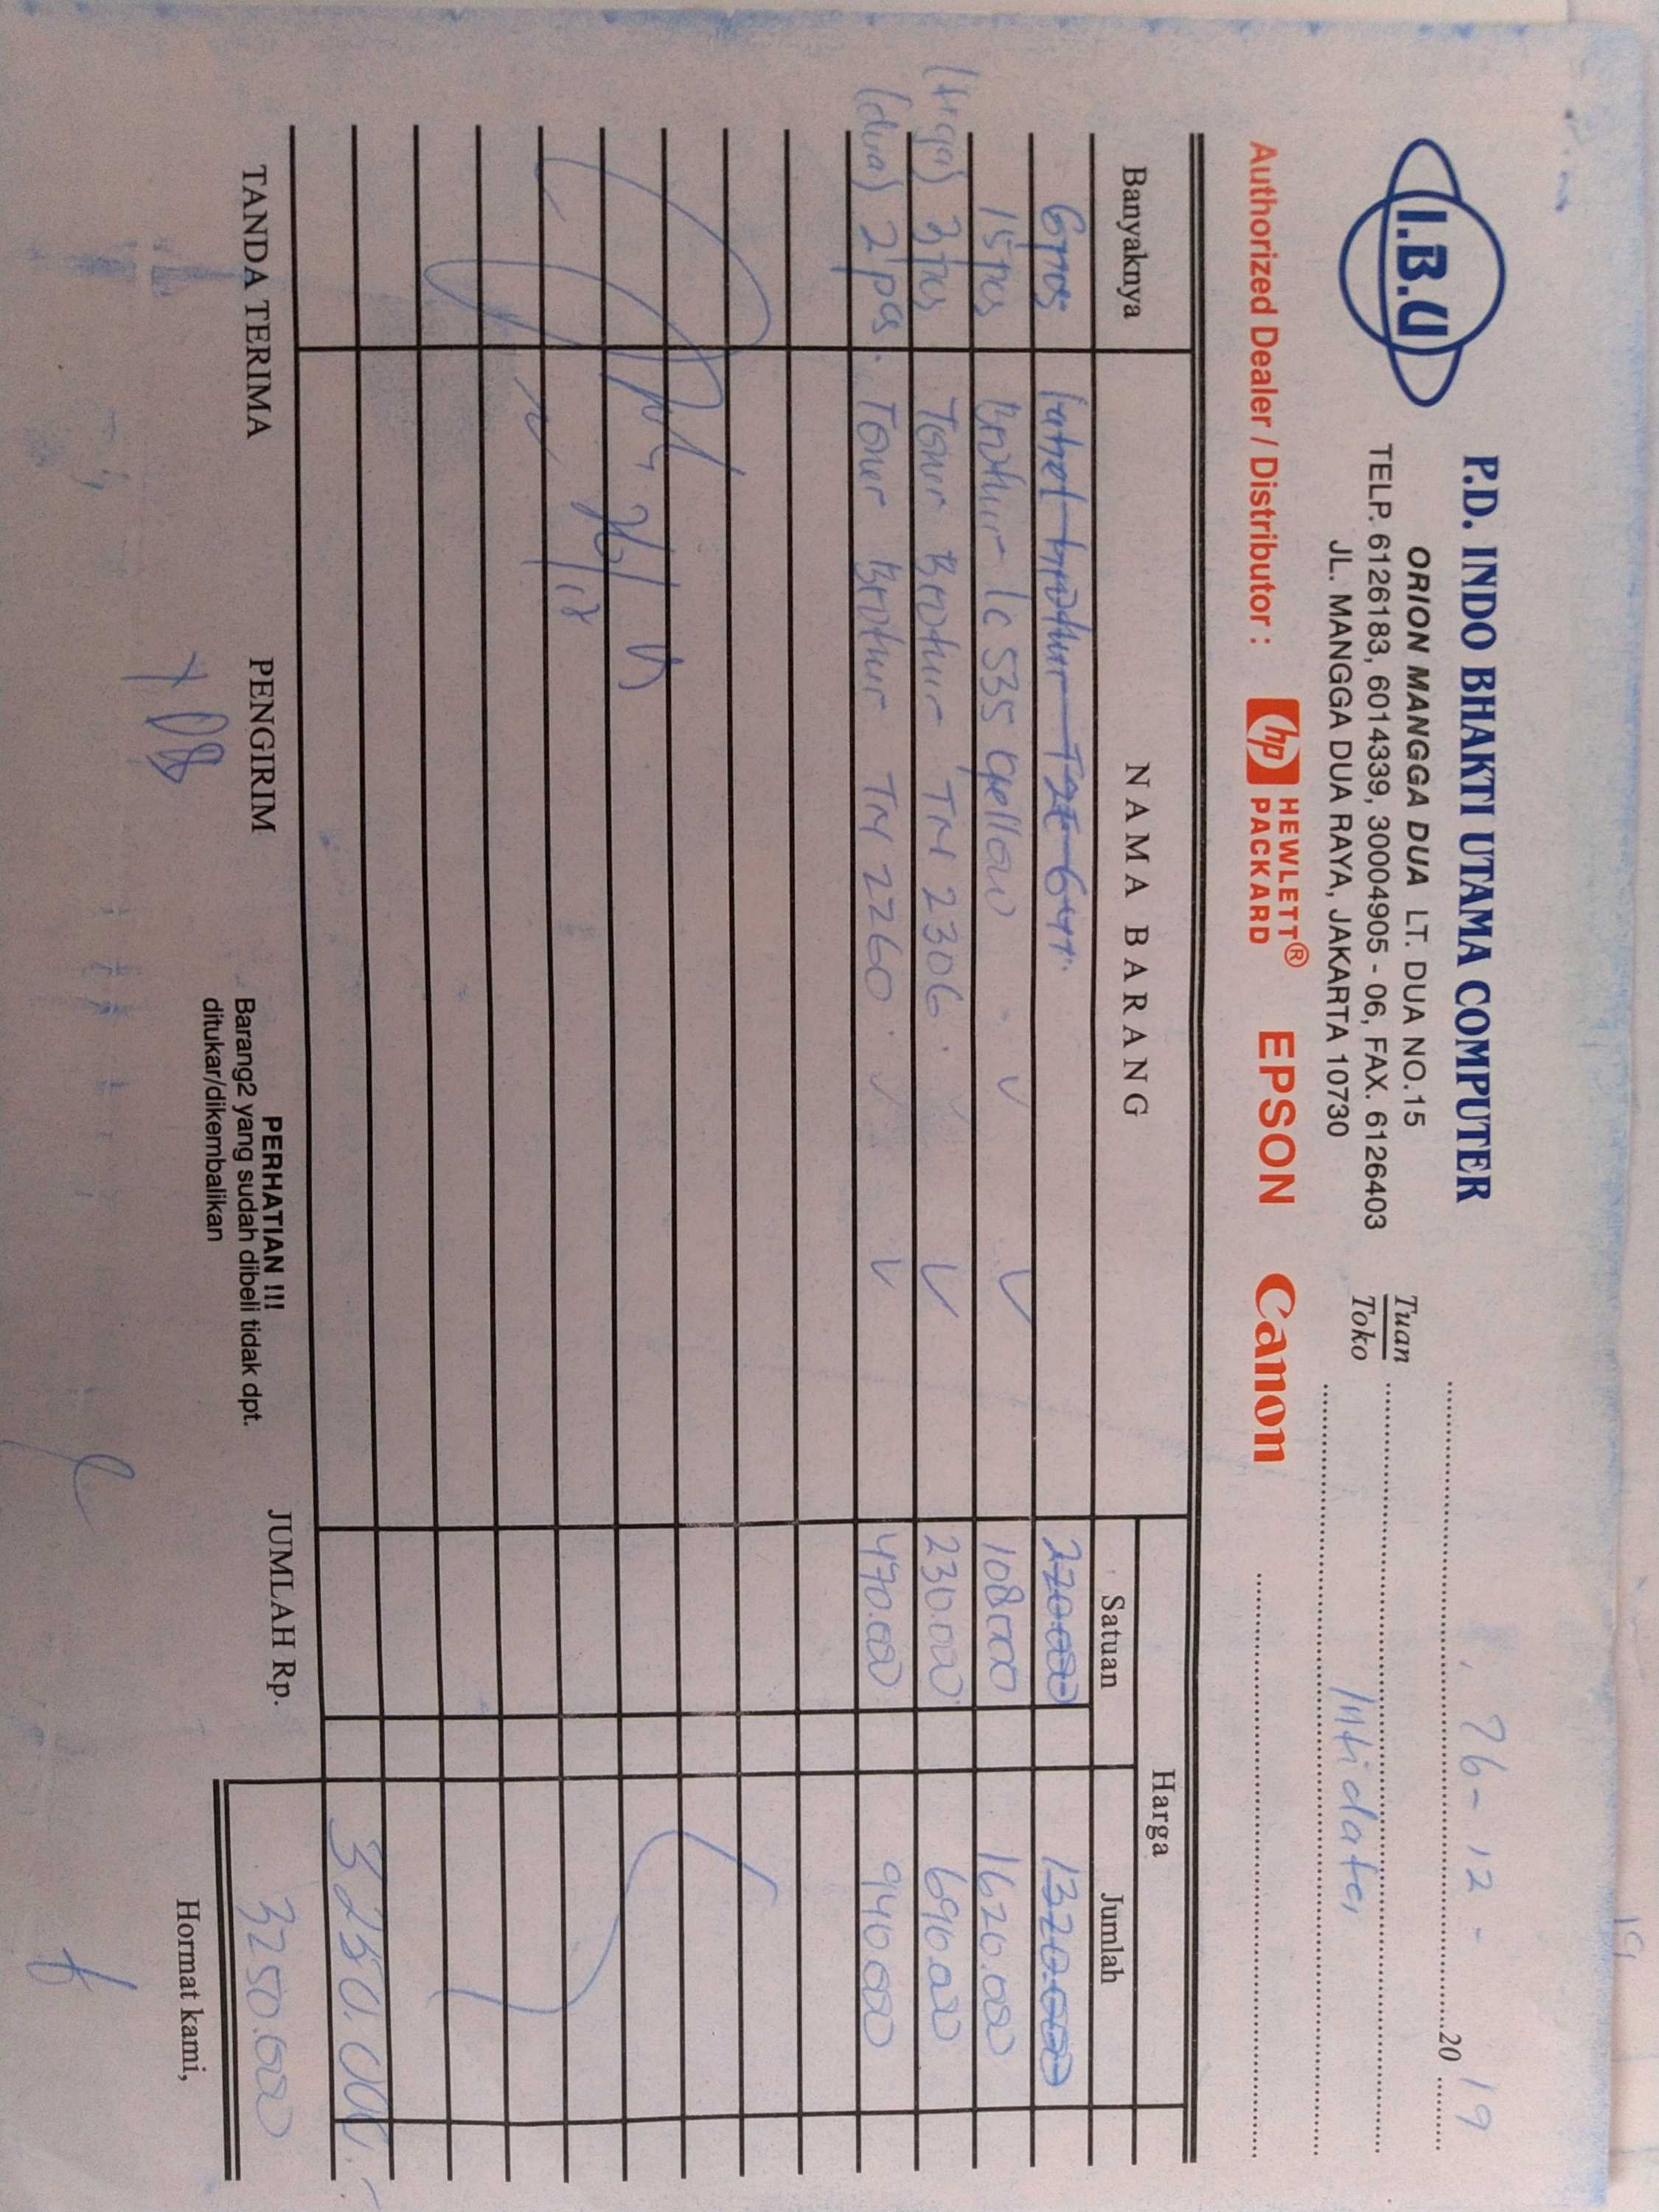 I.B.U
P.D. INDO BHAKTI UTAMA COMPUTER
ORION MANGGA DUA LT. DUA NO.15
TELP. 6126183, 6014339, 30004905 - 06, FAX. 6126403
JL. MANGGA DUA RAYA, JAKARTA 10730
26-12- 20 19
Tuan
Toko
Intidata
Authorized Dealer / Distributor : hp HEWLETT® PACKARD EPSON Canon
Banyaknya NAMA BARANG Harga
Satuan Jumlah
6 pcs brothur 220.000 1320.000
15 pcs Brothur lc 535 yellow 108000 1620.000
(tiga) 3 pcs Toner Brothur TN 2306 230.000 690.000
(dua) 2 pcs. Toner Brothur TN 2260 470.000 940.000
26/12
3250.000
TANDA TERIMA PENGIRIM PERHATIAN !!! JUMLAH Rp. 3250.000
Barang2 yang sudah dibeli tidak dpt.
ditukar/dikembalikan
Hormat kami,